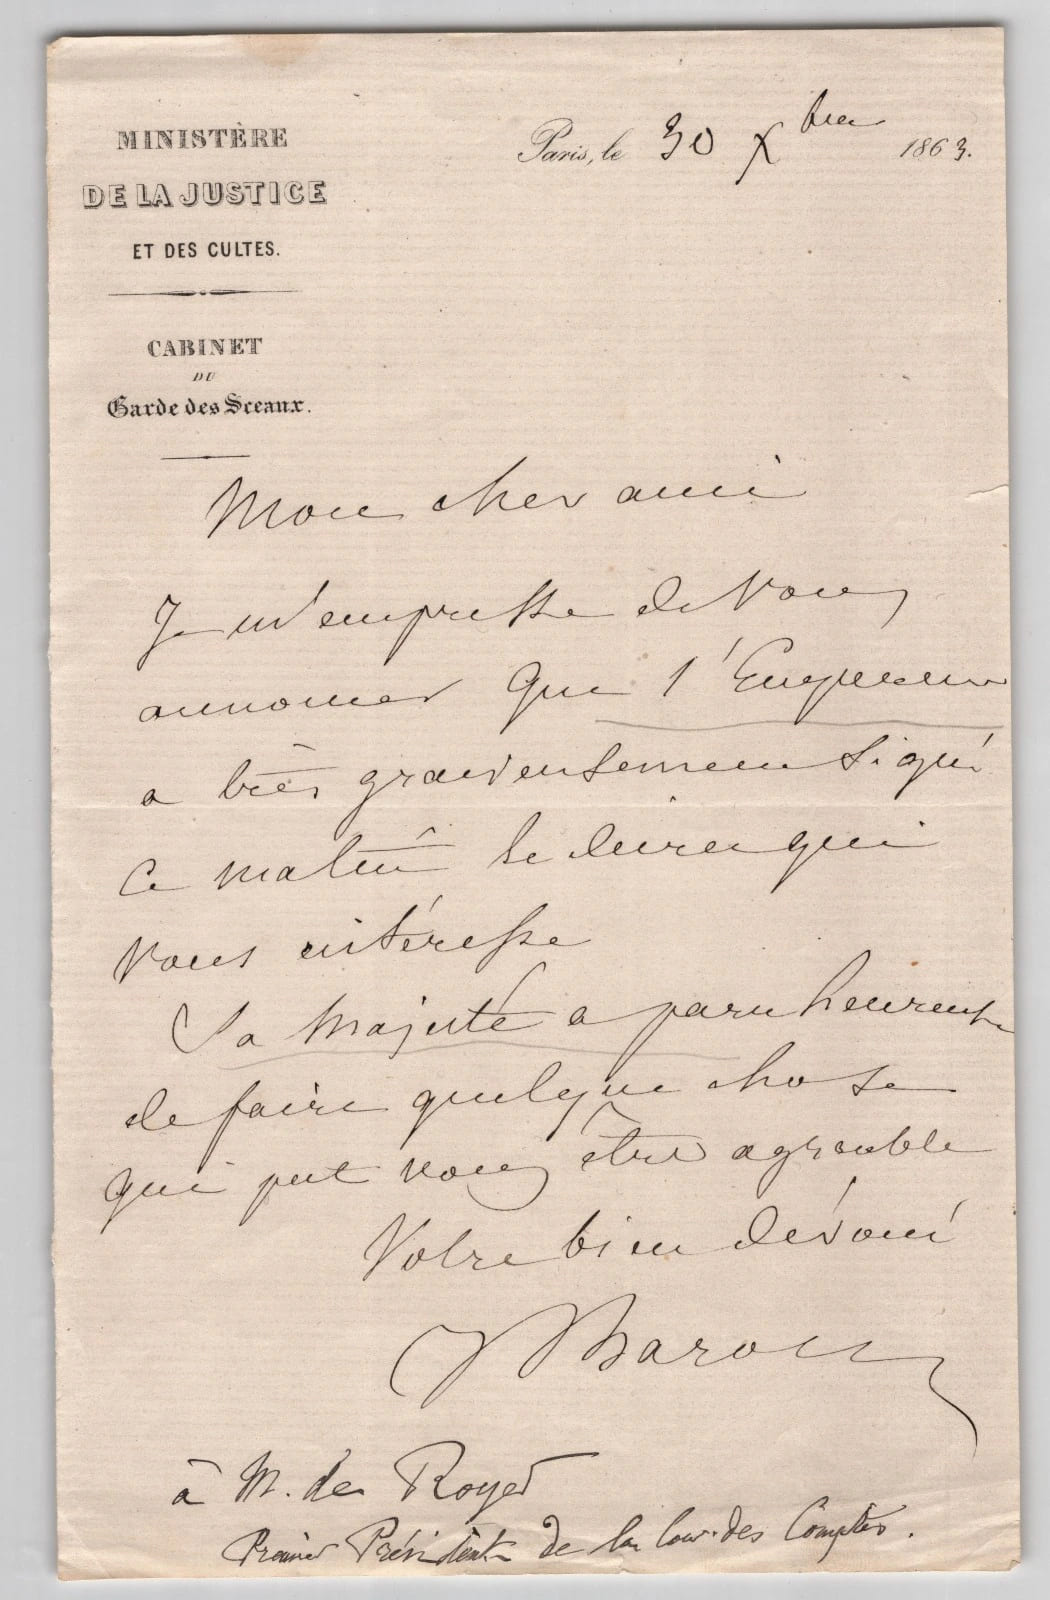 MINISTÈRE
DE LA JUSTICE
ET DES CULTES.
CABINET
DU
Garde des Sceaux.
Paris, le 30 Xbre 1863.
Mon cher ami
Je m'empresse de vous
annoncer que l'Empereur
a très gracieusement signé
ce matin le décret qui
vous intéresse
Sa Majesté a paru heureuse
de faire quelque chose
qui put vous être agréable
Votre bien dévoué
J Baroche
à M. de Royer
Premier Président de la Cour des Comptes.